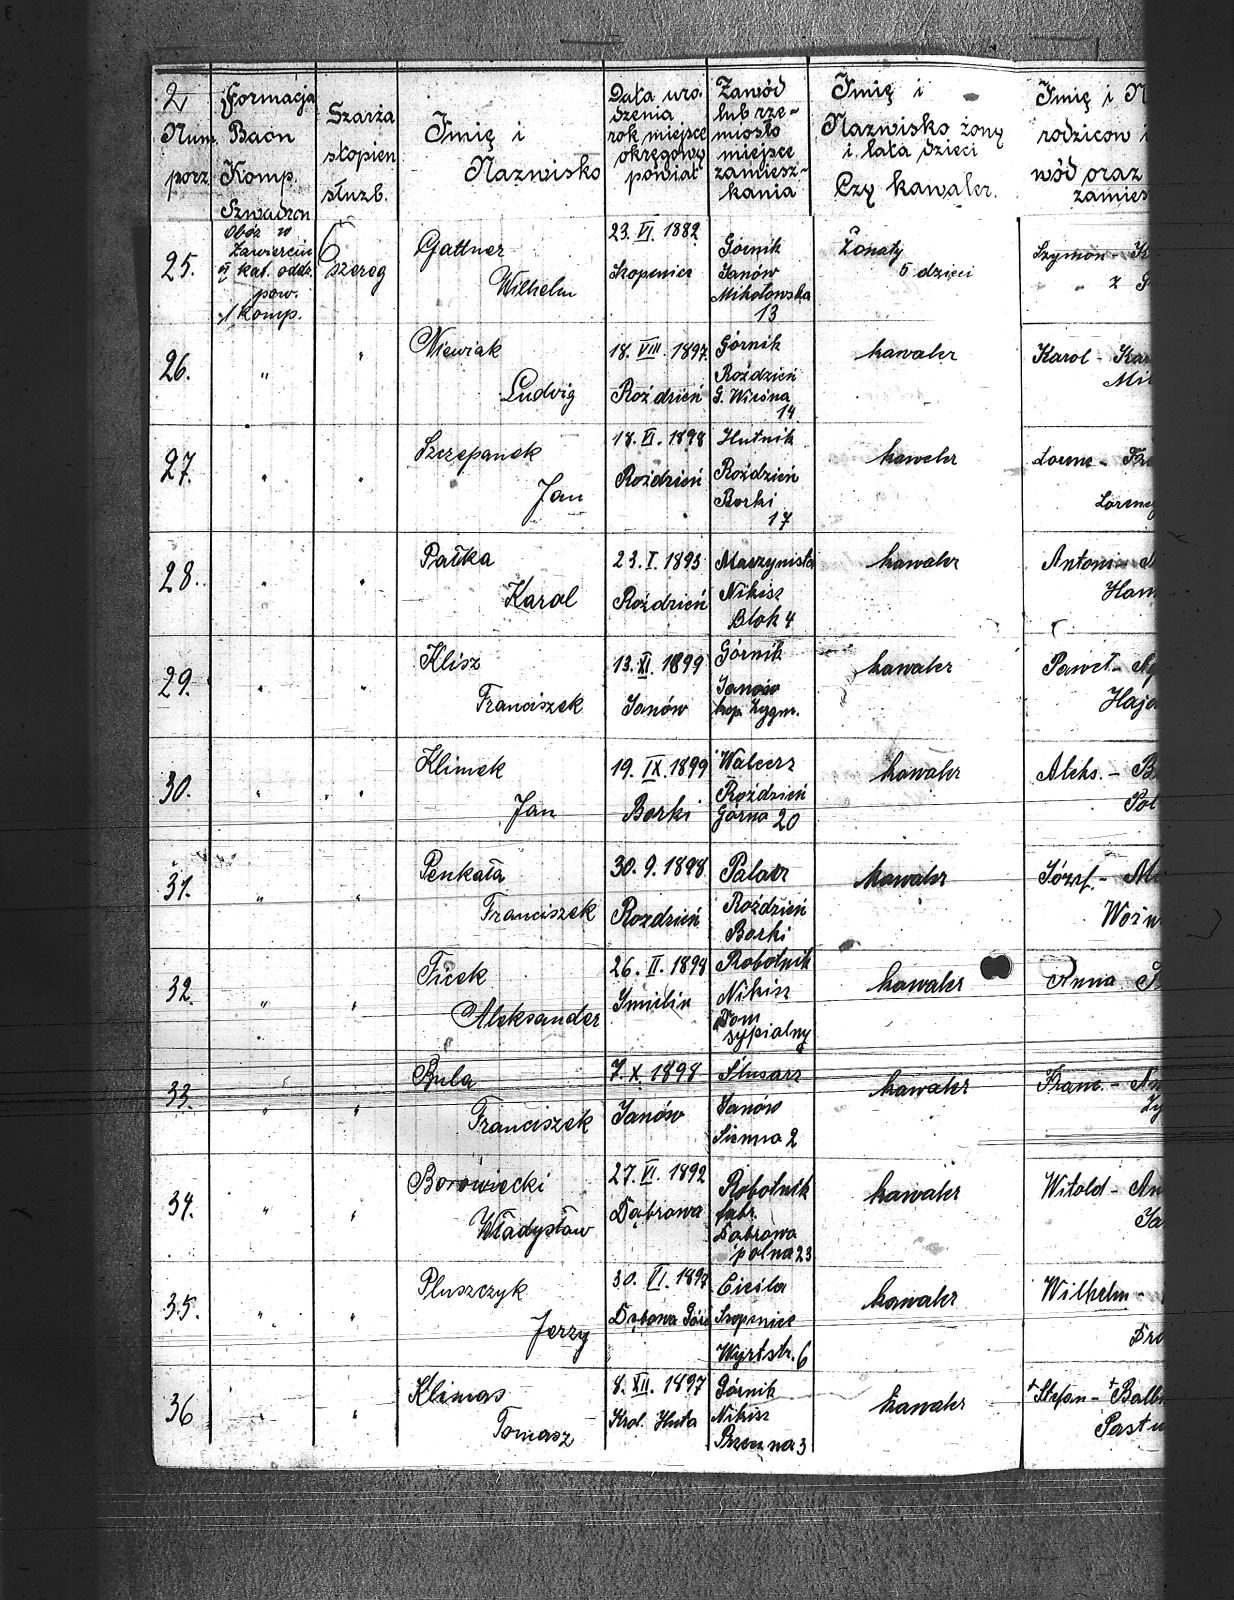 2
Num. porz.
Formacja Baon Komp. Szwadron
Szarża stopień służb.
Imię i Nazwisko
Data uro- dzenia rok miejsce okręgowy powiat
Zawód lub rze- miosło miejsce zamiesz- kania
Imię i Nazwisko żony i lata dzieci Czy kawaler.
Imię i N
rodziców i
wód oraz
zamies
25.
Obóz w Zawierciu
kat. oddz. pow.
1/ komp.
szereg
Gattner
Wilhelm
23. VI. 1882
Szopenice
Górnik
Janów
Mikołowska
13
Żonaty
5 dzieci
Szymon -
z
26.
"
"
Niewiak
Ludwig
18. VIII. 1897.
Roździeń
Górnik
Roździeń
G. Wiejsna
14
kawaler
Karol - Kar
Mil
27.
"
"
Szczepanek
Jan
18. VI. 1898
Roździeń
Hutnik
Roździeń
Borki
17
kawaler
Lorenc -
Lorency
28.
"
"
Pałka
Karol
23. I. 1893
Roździeń
Maszynista
Nikisz
Blok 4
kawaler
Antoni -
Ham
29.
"
"
Klisz
Franciszek
13. XI. 1899
Janów
Górnik
Janów
kop. Zygm.
kawaler
Paweł -
Hajd
30.
"
"
Klimek
Jan
19. IX. 1899
Borki
Walcerz
Roździeń
Górna 20
kawaler
Aleks. - B
Pol
31.
"
"
Penkała
Franciszek
30. 9. 1898
Rozdzień
Palacz
Roździeń
Borki
kawaler
Józef. -
Woźn
32.
"
"
Ficek
Aleksander
26. II. 1898
Imielin
Robotnik
Nikisz
Dom
sypialny
kawaler
Anna
33.
"
"
Bula
Franciszek
7. X. 1898
Janów
Ślusarz
Janów
Sienna 2
kawaler
Franc. - An
Zy
34.
"
"
Borowiecki
Władysław
27. VI. 1892
Dąbrowa
Robotnik
fabr.
Dąbrowa
polna 23
kawaler
Witold - An
Ja
35.
"
"
Pluszczyk
Jerzy
30. VI. 1897
Dąbowa Góra
Cieśla
Szopenice
Wyrtstr. 6
kawaler
Wilhelm -
Dro
36
"
"
Klimas
Tomasz
8. XII. 1897
Krol. Huta
Górnik
Nikisz
Poczna 3
kawaler
+Stefan - +Balb
Pastu